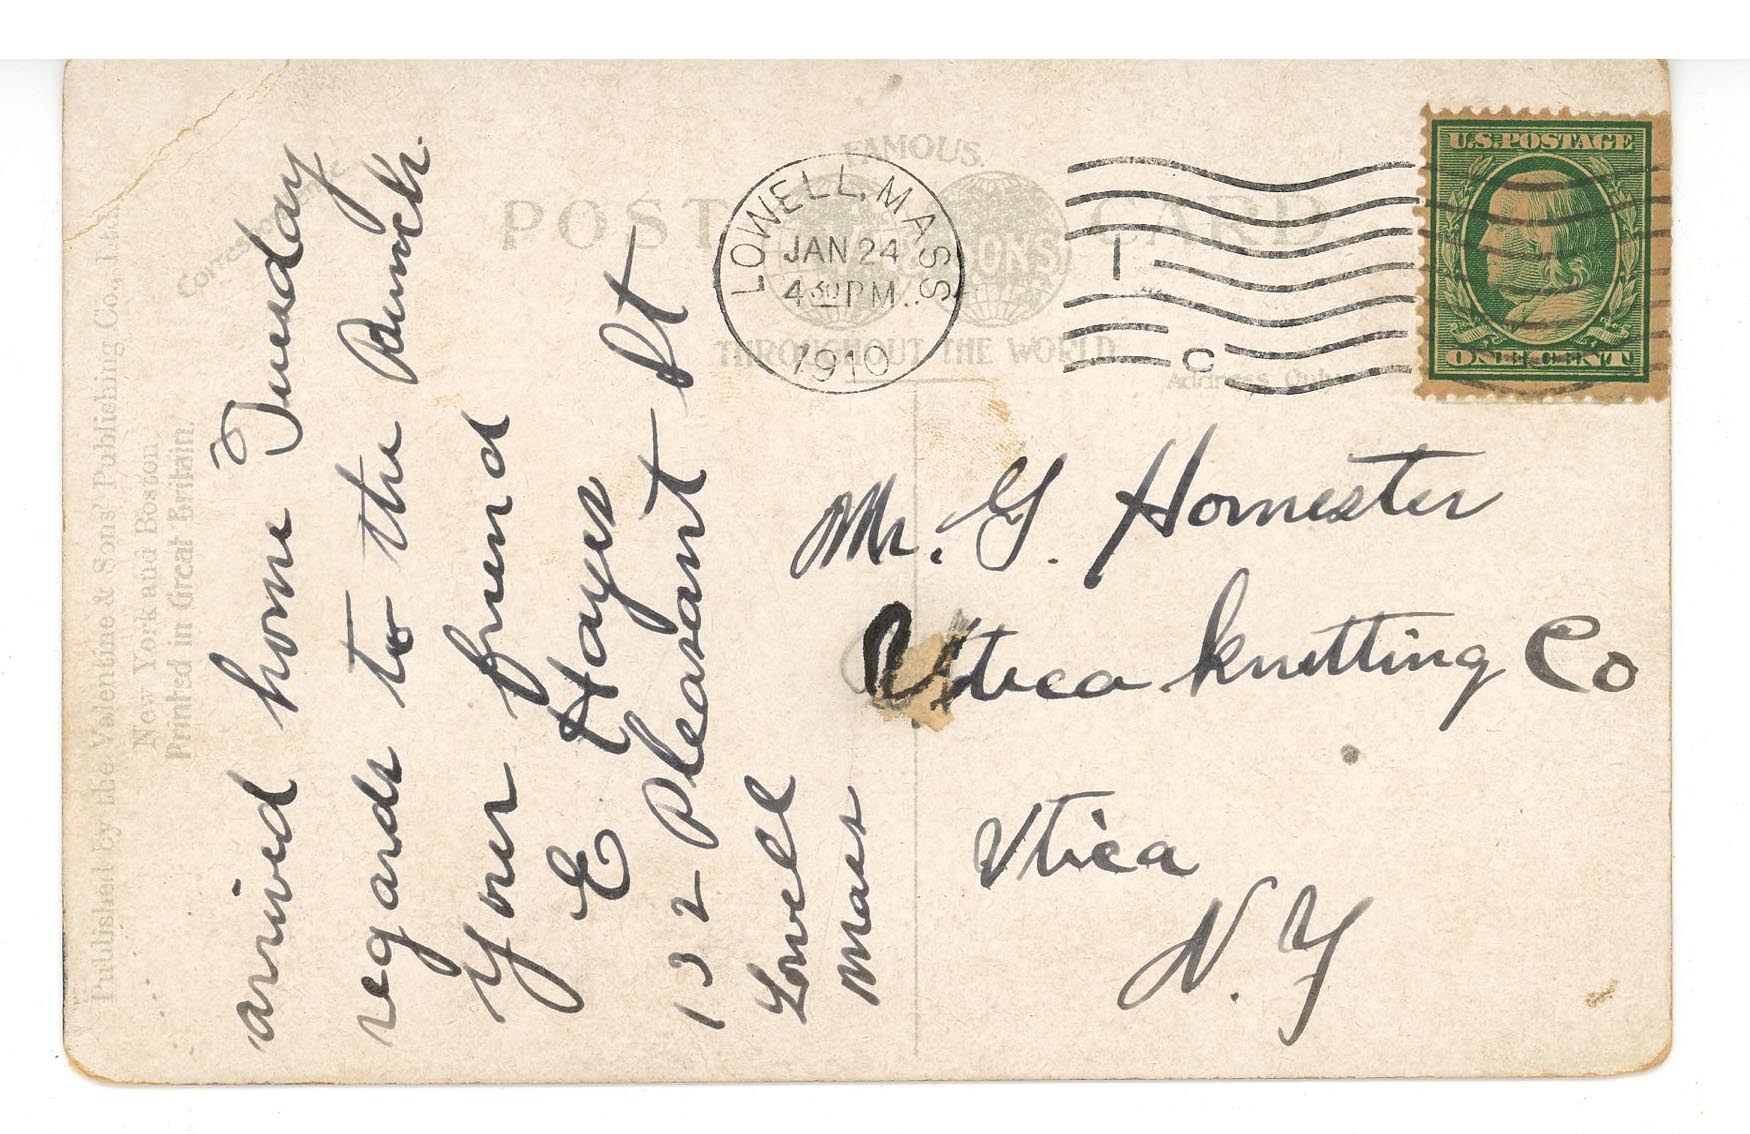 Published by the Valentine & Sons' Publishing Co., Ltd.
New York and Boston.
Printed in Great Britain.
Correspondence
FAMOUS
POST CARD
SONS
THROUGHOUT THE WORLD
Address Only
LOWELL, MASS.
JAN 24
4 30 PM
1910
1
C
U.S. POSTAGE
ONE CENT
arrived home Tuesday
regards to the Bunch.
your friend
E Hayes
132 Pleasant St
Lowell
Mass
Mr. G. Homester
Utica Knitting Co
Utica
N. Y